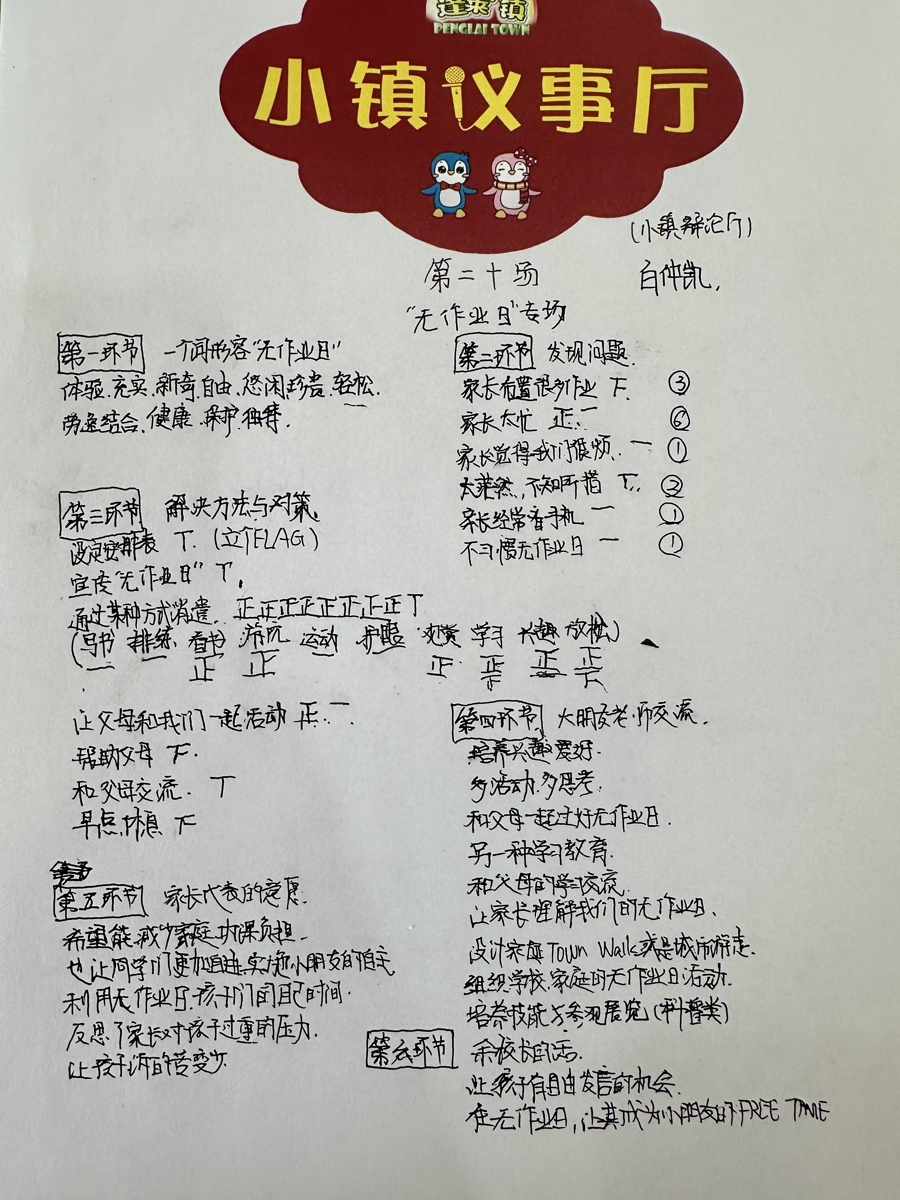 蓬莱镇
PENGLAI TOWN
小镇议事厅
(小镇辩论厅)
第二十场
白仲凯.
"无作业日"专场
第一环节 一个词形容"无作业日"
体验.充实.新奇.自由.悠闲.珍贵.轻松.
劳逸结合.健康.保护.独特.
第二环节 发现问题.
家长布置很多作业 下 ③
家长太忙 正一 ⑥
家长觉得我们很烦. 一 ①
太茫然,不知所措 T. ②
家长经常看手机 一 ①
不习惯无作业日 一 ①
第三环节 解决方法与对策.
设定安排表 T. (立个FLAG)
宣传"无作业日" T.
通过某种方式消遣. 正正正正正正正正T
(写书 排练 看书 游玩 运动 护眼 欣赏 学习 兴趣 放松)
一 一 正 正 一 正 正下 正 正下
让父母和我们一起活动 正一
帮助父母 下.
和父母交流. T
早点休息 下
第四环节 大朋友老师交流.
培养兴趣爱好.
多活动.多思考.
和父母一起过好无作业日.
另一种学习教育.
和父母的学习交流.
让家长理解我们的无作业日.
设计家庭Town Walk或是城市游走.
组织学校.家庭的无作业日活动.
培养技能与参观展览(科普类)
第五环节 家长代表的意愿.
希望能减少家庭功课负担.
也让同学们更加自律,实现小朋友的自主
利用无作业日.孩子们的自己时间.
反思了家长对孩子过重的压力.
让孩子们的苦变少.
第六环节 余校长的话.
让孩子有自由发言的机会.
在无作业日,让其成为小朋友的FREE TIME